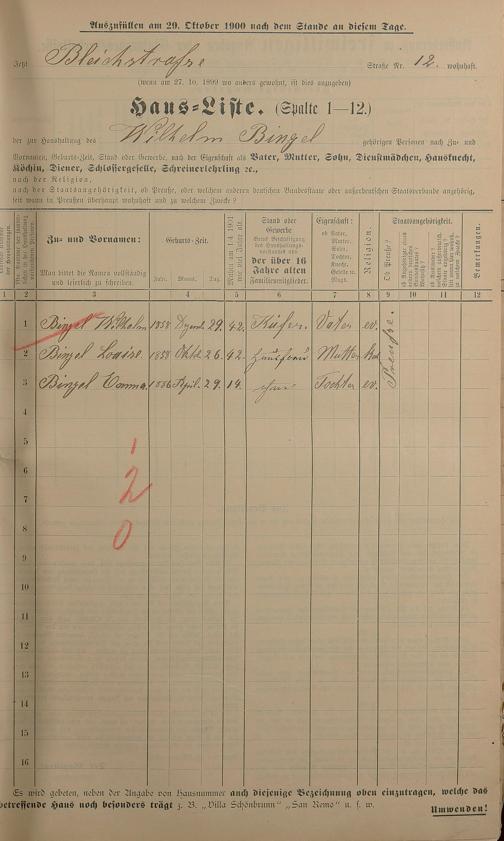 Auszufüllen am 29. Oktober 1900 nach dem Stande an diesem Tage.
Jetzt Bleichstrafse Straße Nr. 12. wohnhaft.
(wenn am 27. 10. 1899 wo anders gewohnt, ist dies anzugeben)
Haus-Liste. (Spalte 1—12.)
der zur Haushaltung des Wilhelm Bingel gehörigen Personen nach Zu- und
Vornamen, Geburts-Zeit, Stand oder Gewerbe, nach der Eigenschaft als Vater, Mutter, Sohn, Dienstmädchen, Hausknecht,
Köchin, Diener, Schlossergeselle, Schreinerlehrling ec.,
nach der Religion,
nach der Staatsangehörigkeit, ob Preuße, oder welchem anderen deutschen Bundesstaate oder außerdeutschen Staatsverbande angehörig,
seit wann in Preußen überhaupt wohnhaft und zu welchem Zweck?
Zu- und Vornamen:
Man bittet die Namen vollständig
und leserlich zu schreiben.
Geburts-Zeit.
Jahr. Monat. Tag.
Stand oder
Gewerbe
der über 16
Jahre alten
Familienmitglieder.
Eigenschaft:
ob Vater,
Mutter,
Sohn,
Tochter,
Knecht,
Geselle u.
Magd.
Religion.
Staatsangehörigkeit.
Ob Preuße?
Bemerkungen.
1 2 3 4 5 6 7 8 9 10 11 12
1 Bingel Wilhelm 1858 Dezemb. 29. 42. Küfer. Vater ev.
2 Bingel Louise. 1858 Oktb. 26. 42. Hausfrau Mutter
3 Bingel Emma. 1886 April. 29. 14. Tochter ev.
Preuße.
4
5
6
7
8
9
10
11
12
13
14
15
16
1
2
0
Es wird gebeten, neben der Angabe von Hausnummer auch diejenige Bezeichnung oben einzutragen, welche das
betreffende Haus noch besonders trägt z. B. „Villa Schönbrunn“ „San Remo“ u. s. w.
Umwenden!